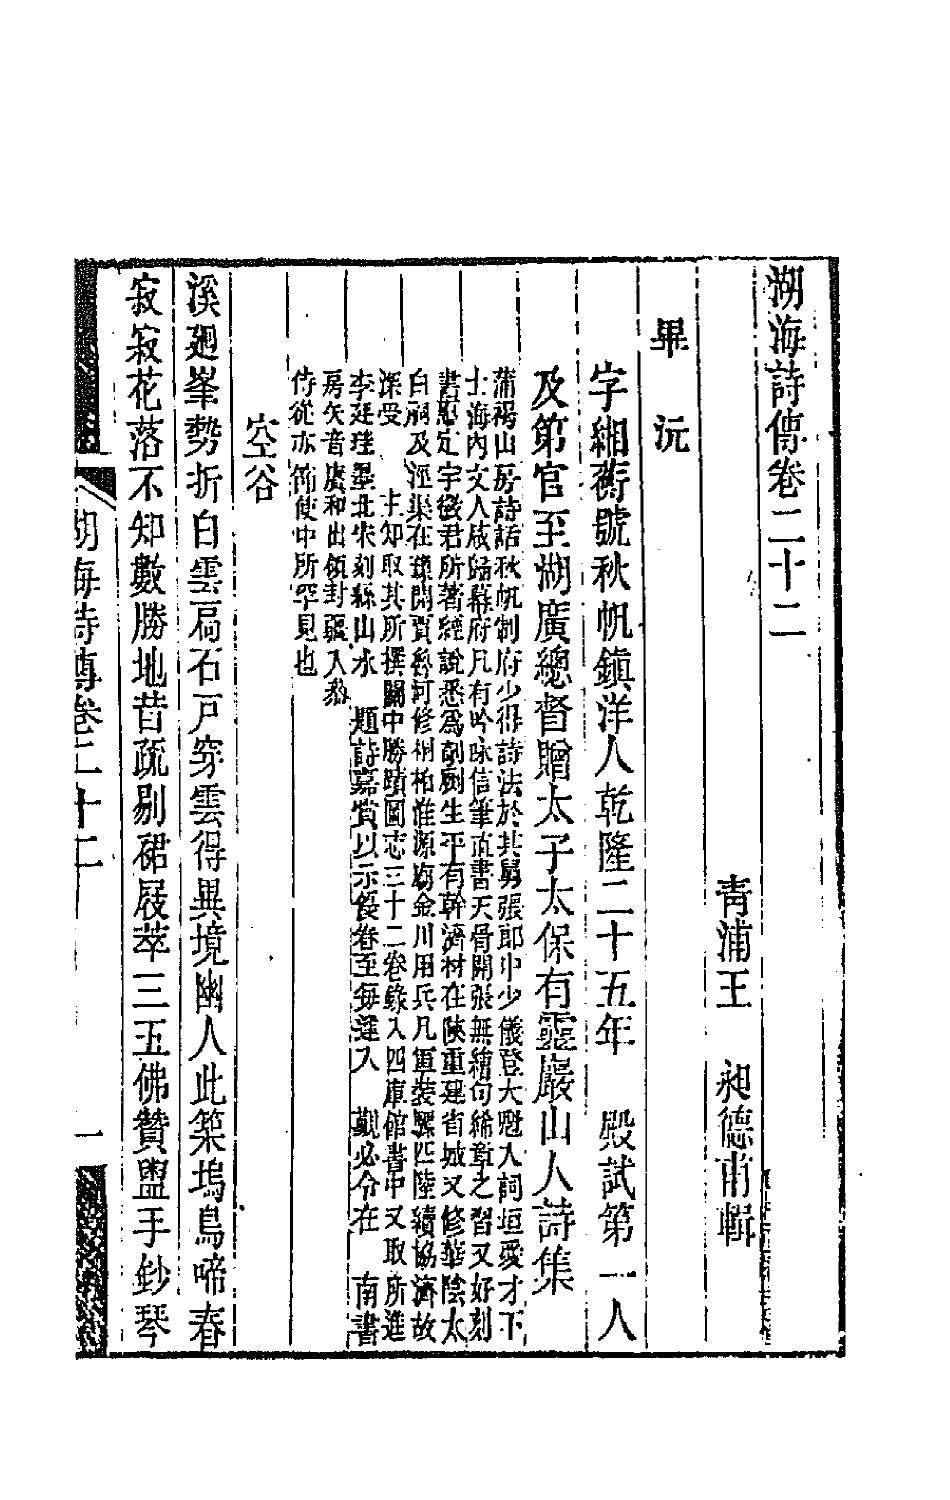 湖海詩傳卷二十二
青浦王 昶德甫輯
畢 沅
字緗蘅號秋帆鎮洋人乾隆二十五年 殿試第一人
及第官至湖廣總督贈太子太保有靈巖山人詩集
蒲褐山房詩話秋帆制府少得詩法於其舅張郎中少儀登大魁入詞垣愛才下
士海內文人咸歸幕府凡有吟咏信筆直書天骨開張無繪句絺章之習又好刻
書惠定宇徵君所著經說悉為剞劂生平有幹濟材在陝重建省城又修華陰太
白祠及涇渠在豫開賈魯河修桐柏淮源廟金川用兵凡軍裝騾匹陸續協濟故
深受 主知取其所撰關中勝蹟圖志三十二卷錄入四庫館書中又取所進
李廷珪墨北宋刻絲山水 題詩嘉賞以示後卷至每運入 覲必令在 南書
房矢音賡和出領封疆入參
侍從亦節使中所罕見也
空谷
溪廻峯勢折白雲扃石戸穿雲得異境幽人此築塢鳥啼春
寂寂花落不知數勝地昔疏剔裙屐萃三五佛贊盥手鈔琴
湖海詩傳卷二十二
一